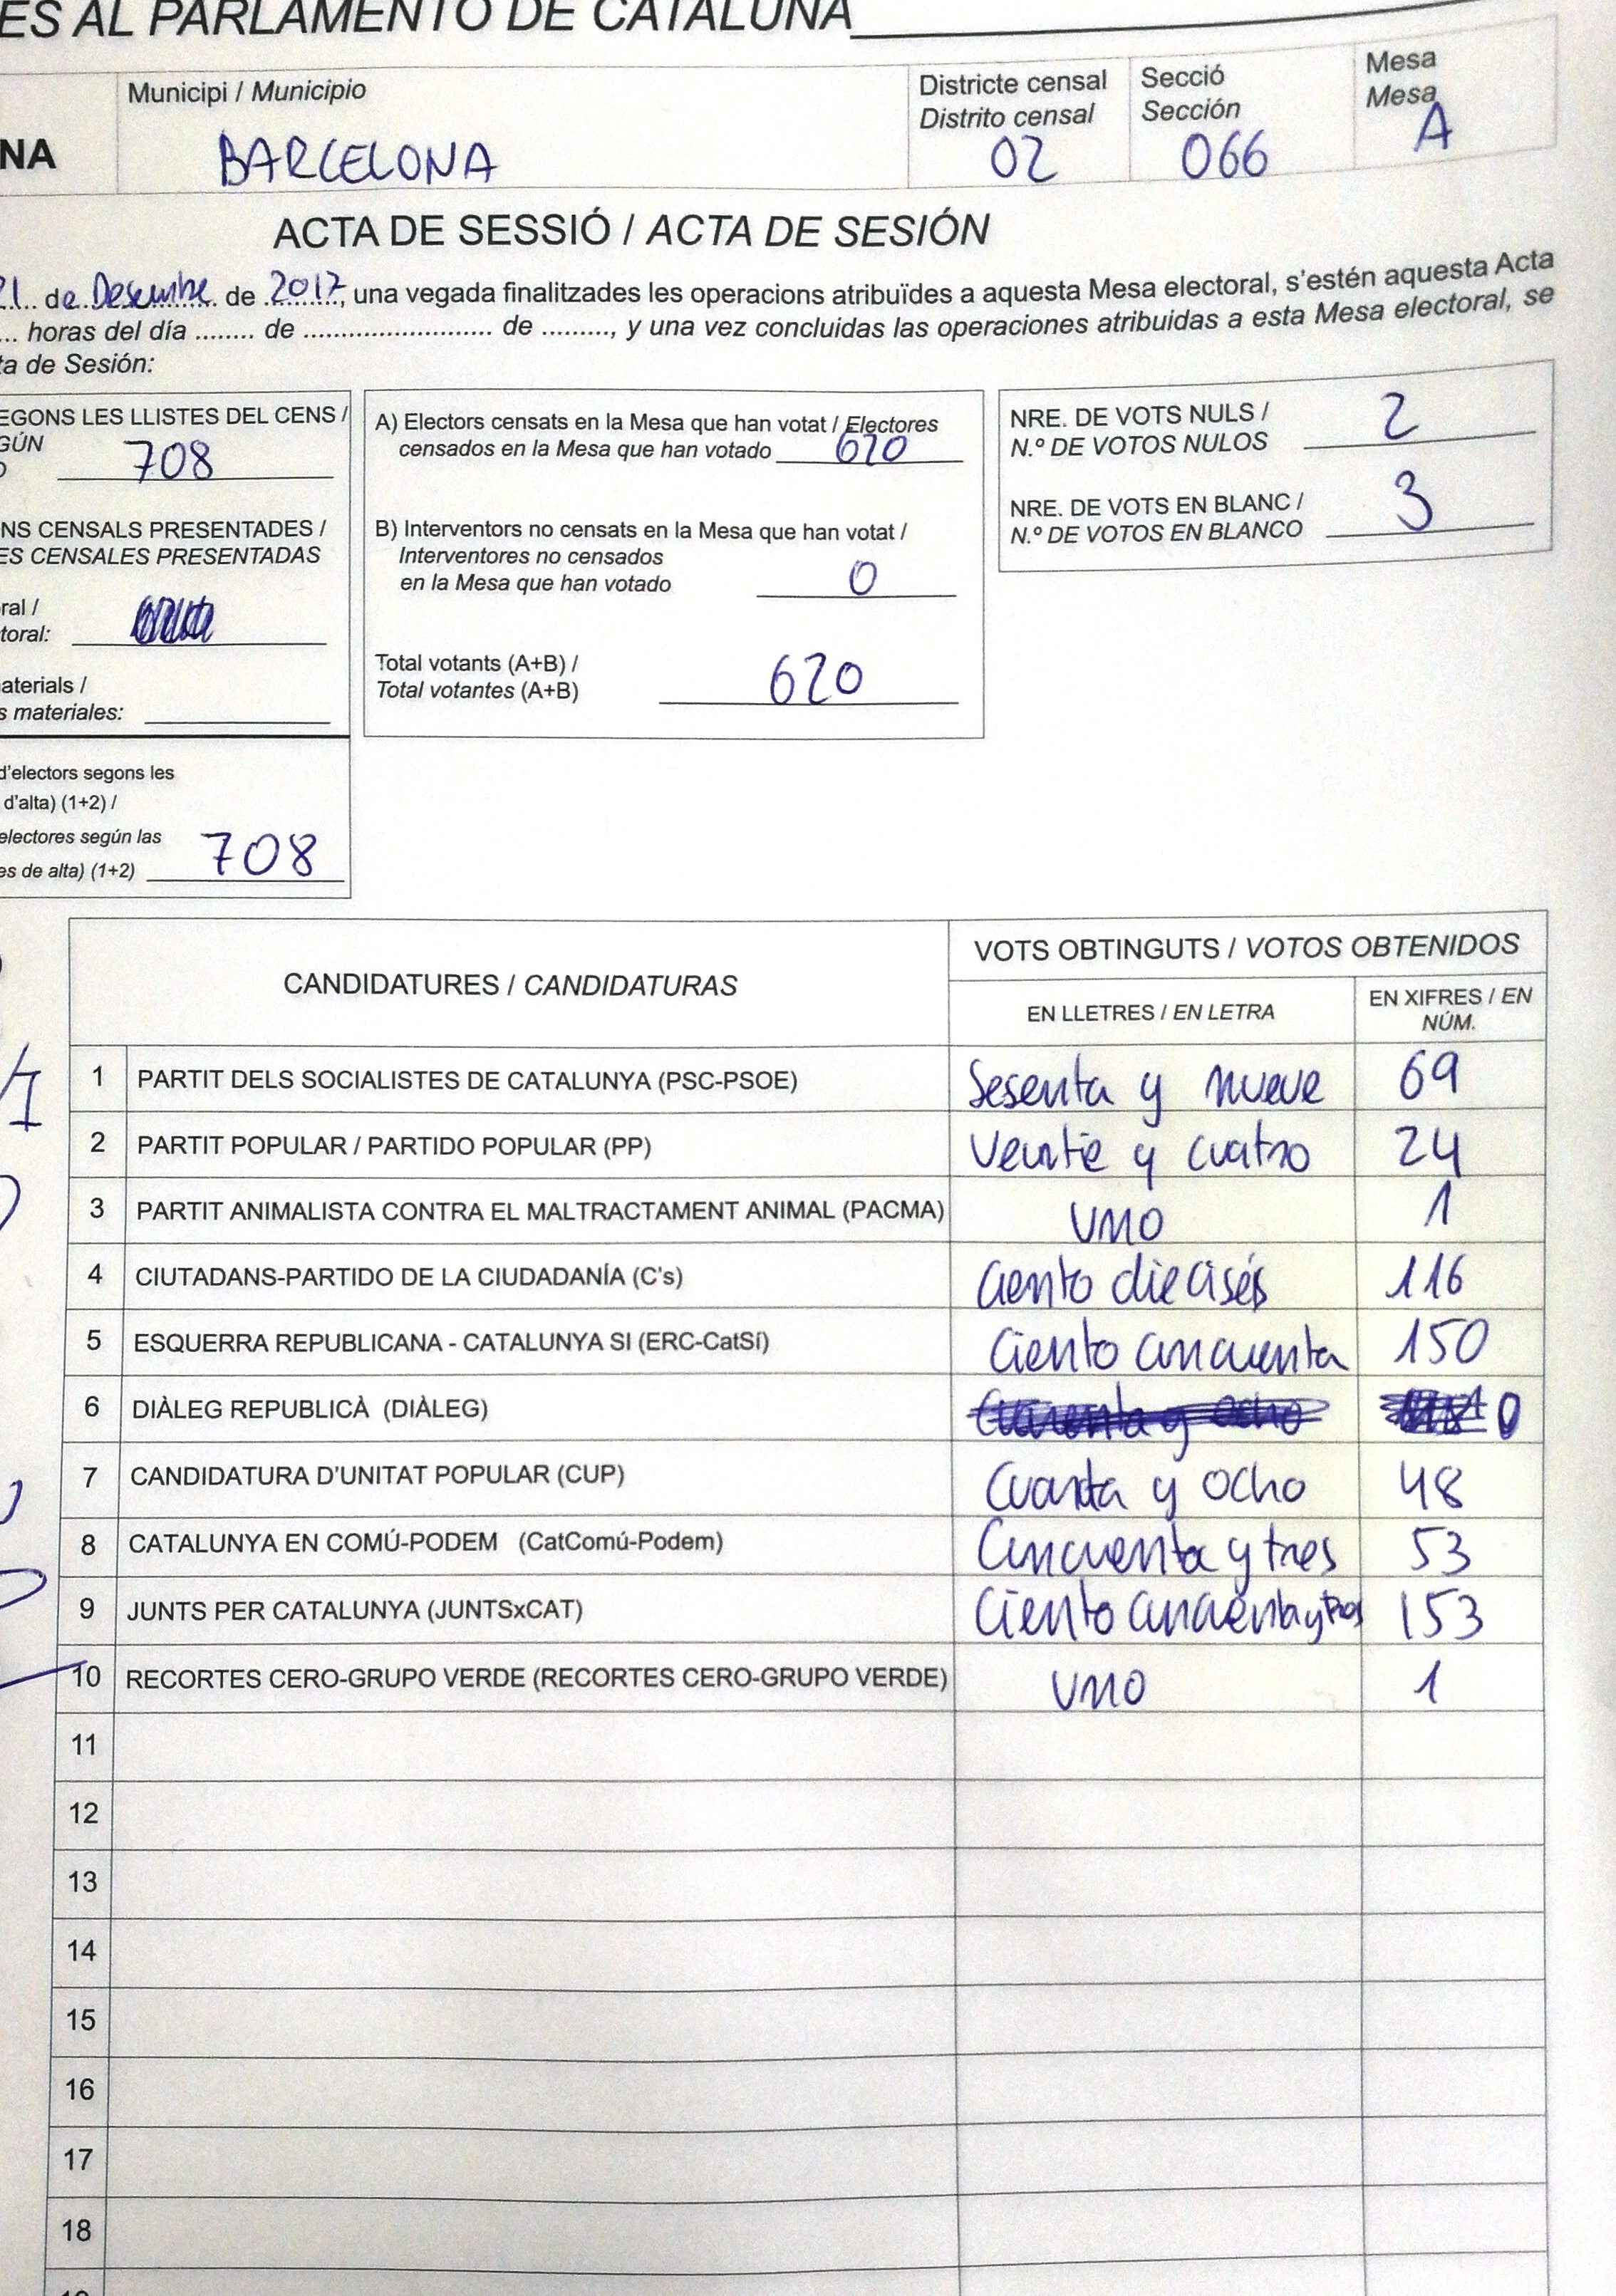 ES AL PARLAMENTO DE CATALUÑA
NA
Municipi / Municipio
BARCELONA
Districte censal
Distrito censal
02
Secció
Sección
066
Mesa
Mesa
A
ACTA DE SESSIÓ / ACTA DE SESIÓN
21 de Desembre de 2017, una vegada finalitzades les operacions atribuïdes a aquesta Mesa electoral, s'estén aquesta Acta
... horas del día ........ de ........................ de ........., y una vez concluidas las operaciones atribuidas a esta Mesa electoral, se
ta de Sesión:
EGONS LES LLISTES DEL CENS /
GÚN
708
NS CENSALS PRESENTADES /
ES CENSALES PRESENTADAS
ral /
toral:
aterials /
s materiales:
d'electors segons les
d'alta) (1+2) /
electores según las
es de alta) (1+2) 708
A) Electors censats en la Mesa que han votat / Electores
censados en la Mesa que han votado 620
B) Interventors no censats en la Mesa que han votat /
Interventores no censados
en la Mesa que han votado 0
Total votants (A+B) /
Total votantes (A+B) 620
NRE. DE VOTS NULS /
N.º DE VOTOS NULOS 2
NRE. DE VOTS EN BLANC /
N.º DE VOTOS EN BLANCO 3
CANDIDATURES / CANDIDATURAS
VOTS OBTINGUTS / VOTOS OBTENIDOS
EN LLETRES / EN LETRA
EN XIFRES / EN
NÚM.
1 PARTIT DELS SOCIALISTES DE CATALUNYA (PSC-PSOE) Sesenta y nueve 69
2 PARTIT POPULAR / PARTIDO POPULAR (PP) Veintie y cuatro 24
3 PARTIT ANIMALISTA CONTRA EL MALTRACTAMENT ANIMAL (PACMA) UNO 1
4 CIUTADANS-PARTIDO DE LA CIUDADANÍA (C's) Ciento dieciséis 116
5 ESQUERRA REPUBLICANA - CATALUNYA SI (ERC-CatSí) Ciento cincuenta 150
6 DIÀLEG REPUBLICÀ (DIÀLEG) 0
7 CANDIDATURA D'UNITAT POPULAR (CUP) Cuarta y ocho 48
8 CATALUNYA EN COMÚ-PODEM (CatComú-Podem) Cincuenta y tres 53
9 JUNTS PER CATALUNYA (JUNTSxCAT) Ciento cincuenta y tres 153
10 RECORTES CERO-GRUPO VERDE (RECORTES CERO-GRUPO VERDE) UNO 1
11
12
13
14
15
16
17
18